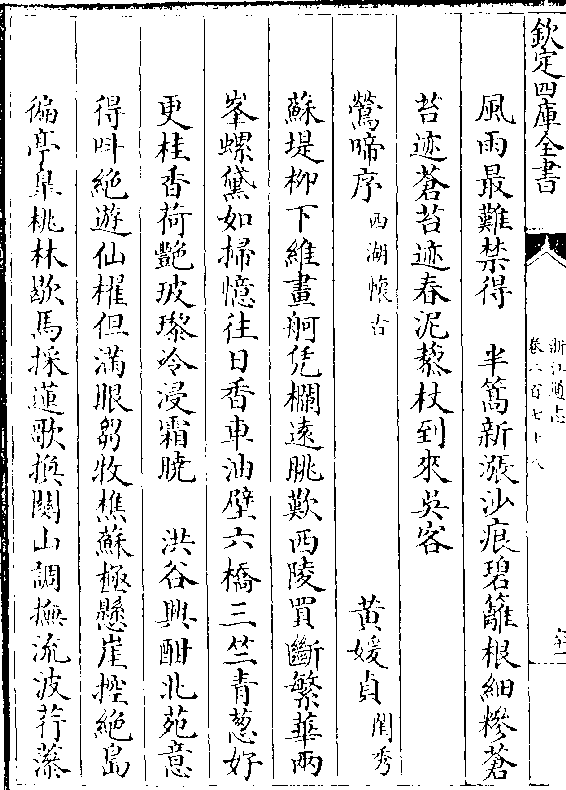 欽定四庫全書
浙江通志
卷二百七十八
風雨最難禁得　半篙新漲沙痕碧籬根細糝蒼
苔迹蒼苔迹春泥藜杖到來吳客
鶯啼序西湖懷古　黃媛貞閨秀
蘇堤柳下維畫舸凭欄遠眺歎西陵買斷繁華兩
峯螺黛如掃憶往日香車油壁六橋三竺青葱好
更桂香荷艷玻瓈冷浸霜曉　洪谷興酣北苑意
得呌絶遊仙櫂但滿眼芻牧樵蘇極懸崖挫絶島
徧亭臯桃林歇馬採蓮歌換關山調撫流波荇藻